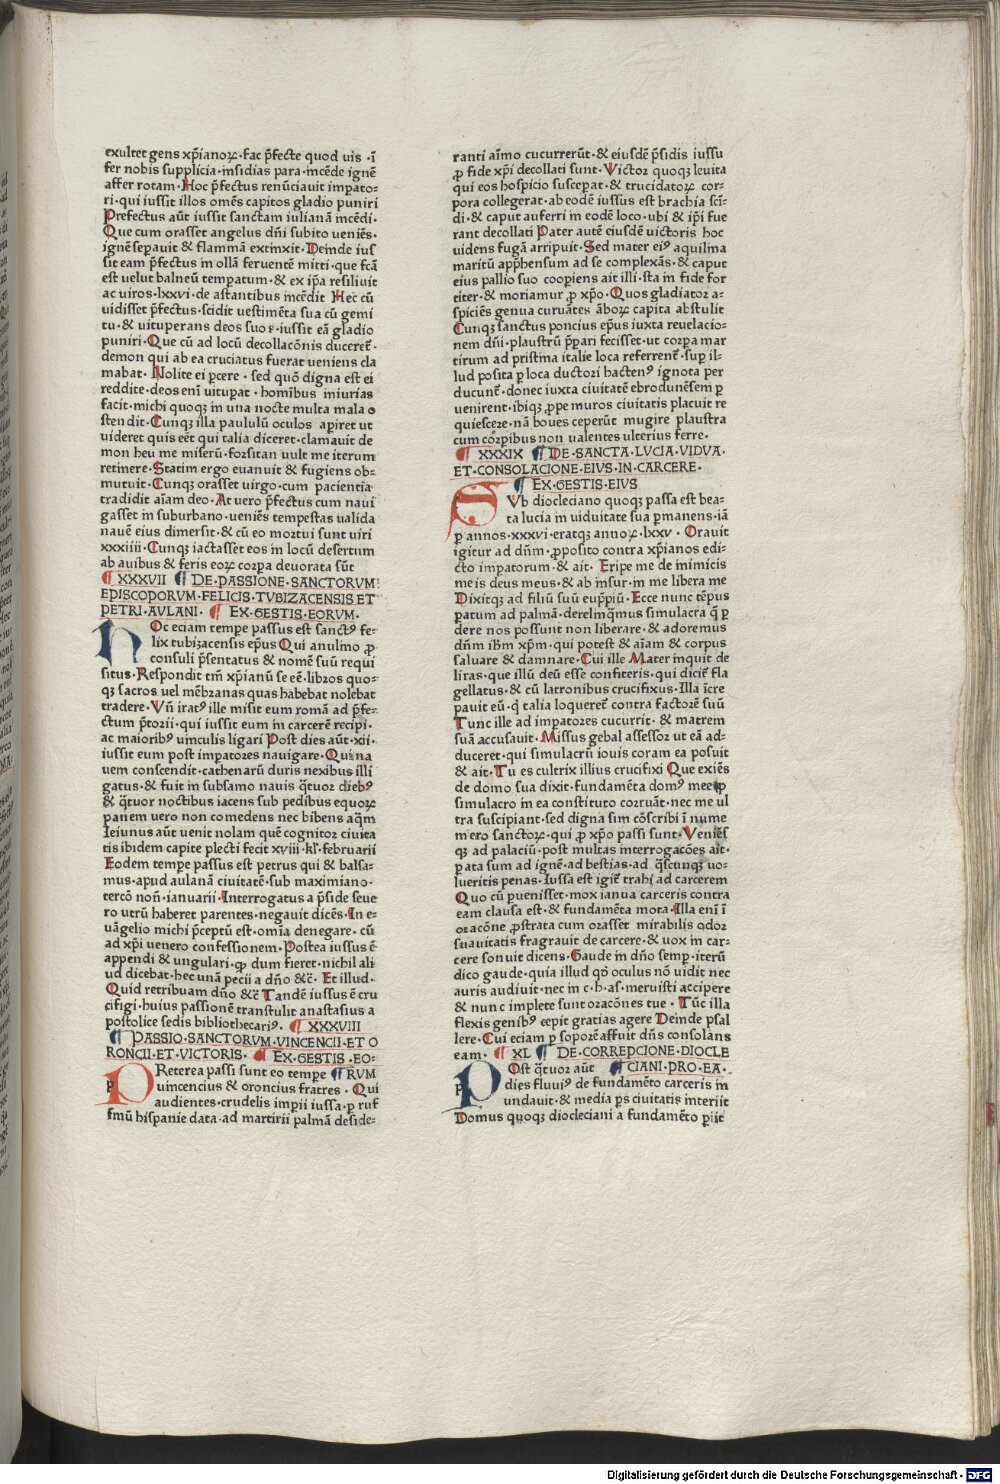 exultet gens xp̄ianoꝝ·fac p̄fecte quod uis·ī
fer nobis supplicia·insidias para·incēde ignē
affer rotam·Hoc p̄fectus renūciauit impato-
ri·qui iussit illos omēs capitos gladio puniri
Prefectus aūt iussit sanctam iulianā incēdi·
Que cum orasset angelus dn̄i subito ueniēs·
ignē sepauit & flammā extinxit·Deinde ius
sit eam p̄fectus in ollā feruentē mitti·que fc̄ā
est uelut balneū tempatum·& ex ip̄a resiliuit
ac uiros·lxxvi·de astantibus incēdit Hec cū
uidisset p̄fectus·scidit uestimēta sua cū gemi
tu·& uituperans deos suos·iussit eā gladio
puniri·Que cū ad locū decollacōnis ducereē·
demon qui ab ea cruciatus fuerat ueniens cla
mabat·Nolite ei ꝑcere·sed quō digna est ei
reddite·deos eni uituꝑat·homibus iniurias
facit·michi quoqꝫ in una nocte multa mala o
stendit·Cunqꝫ illa paululū oculos aꝑiret ut
uideret quis eēt qui talia diceret·clamauit de
mon heu me miserū·forsitan uult me iterum
retinere·Statim ergo euanuit & fugiens ob-
mutuit·Cunqꝫ orasset uirgo·cum pacientia
tradidit aīam deo·At uero p̄fectus cum naui
gasset in suburbano·ueniēs tempestas ualida
nauē eius dimersit·& cū eo mortui sunt uiri
xxxiiii·Cunqꝫ iactasset eos in locū desertum
ab auibus & feris eoꝝ corpa deuorata sūt
¶ XXXVII ¶ DE·PASSIONE·SANCTORVM·
EPISCOPORVM·FELICIS·TVBIZACENSIS ET
PETRI·AVLANI· ¶ EX·GESTIS·EORVM·
HOc eciam tempe passus est sanctꝰ fe-
lix tubizacensis ep̄us Qui anulino ꝓ
consuli p̄sentatus & nomē suū requi
situs·Respondit tm̄ xp̄ianū se eē·libros quo-
qꝫ sacros uel mēbzanas quas habebat nolebat
tradere·Vn̄ iratꝰ ille misit eum romā ad p̄fe-
ctum p̄torii·qui iussit eum in carcerē recipi·
ac maioribꝰ uinculis ligari Post dies aūt·xii·
iussit eum post impatores nauigare·Qui na
uem conscendit·cathenarū duris nexibus illi
gatus·& fuit in subsamo nauis q̄tuor diebꝰ
& q̄tuor noctibus iacens sub pedibus equoꝝ
panem uero non comedens nec bibens aq̄m
Ieiunus aūt uenit nolam quē cognitor ciuita
tis ibidem capite plecti fecit xviii·kl·februarii
Eodem tempe passus est petrus qui & balsa-
mus·apud aulanā ciuitatē·sub maximiano·
tercō non̄·ianuarii·Interrogatus a p̄side seue
ro utrū haberet parentes·negauit dicēs·In e-
uāgelio michi p̄ceptū est·om̄ia denegare·cū
ad xp̄i uenero confessionem·Postea iussus ē
appendi & ungulari·ꝙ dum fieret·nichil ali
ud dicebat·hec unā pecii a dn̄o &c̄·Et illud·
Quid retribuam dn̄o &c̄ Tandē iussus ē cru
cifigi·huius passionē transtulit anastasius a
postolice sedis bibliothecariꝰ· ¶ XXXVIII
¶ PASSIO·SANCTORVM·VINCENCII·ET O
RONCII·ET VICTORIS· ¶ EX·GESTIS·EO-
PReterea passi sunt eo tempe ¶ RVM
uincencius & oroncius fratres·Qui
audientes·crudelis impii iussa·ꝑ ruf
finū hispanie data·ad martirii palmā deside-
ranti aīmo cucurrerūt·& eiusdē p̄sidis iussu
ꝓ fide xp̄i decollati sunt·Victoꝛ quoqꝫ leuita
qui eos hospicio suscepat·& trucidatoꝝ cor-
pora collegerat·ab eodē iussus est brachia scī-
di·& caput auferri in eodē loco·ubi & ip̄i fue
rant decollati Pater autē eiusdē uictoris hoc
uidens fugā arripuit·Sed mater eiꝰ aquilina
maritū app̄hensum ad se complexās·& caput
eius pallio suo cooꝑiens ait illi·sta in fide for
titer·& moriamur ꝓ xp̄o·Quos gladiator a-
spiciēs genua curuātes āboꝝ capita abstulit
Cunqꝫ sanctus poncius ep̄us iuxta reuelacio-
nem dn̄i·plaustrū p̄pari fecisset·ut corpa mar
tirum ad pristina italie loca referrenē·suꝑ il-
lud posita ꝑ loca ductori hactenꝰ ignota ꝑer
ducunē·donec iuxta ciuitatē ebrodunēsem ꝑ
uenirent·ibiqꝫ ꝓpe muros ciuitatis placuit re
quiescere·nā boues ceperūt mugire plaustra
cum corpibus non ualentes ulterius ferre·
¶ XXXIX ¶ DE·SANCTA·LVCIA·VIDVA·
ET·CONSOLACIONE·EIVS·IN·CARCERE·
¶ EX·GESTIS·EIVS
SVb diocleciano quoqꝫ passa est bea-
ta lucia in uiduitate sua ꝑmanens·iā
ꝑ annos·xxxvi·eratqꝫ annoꝝ·lxxv·Orauit
igitur ad dn̄m·ꝓposito contra xp̄ianos edi-
cto impatorum·& ait·Eripe me de inimicis
meis deus meus·& ab insur·in me libera me
Dixitqꝫ ad filiū suū eup̄piū·Ecce nunc tēpus
ꝑatum ad palmā·derelinq̄mus simulacra q̄ ꝑ
dere nos possunt non liberare·& adoremus
dn̄m ih̄m xp̄m·qui potest & aīam & corpus
saluare & damnare·Cui ille Mater inquit de
liras·que illū deū esse confiteris·qui diciē fla
gellatus·& cū latronibus crucifixus·Illa īcre
pauit eū·q̄ talia loquereē contra factorē suū
Tunc ille ad impatores cucurrit·& matrem
suā accusauit·Missus gebal assessor ut eā ad-
duceret·qui simulacrū iouis coram ea posuit
& ait·Tu es cultrix illius crucifixi Que exiēs
de domo sua dixit·fundamēta domꝰ mee ꝙ
simulacro in ea constituto corruāt·nec me ul
tra suscipiant·sed digna sim cōscribi ī nume
mero sanctoꝝ·qui ꝓ xp̄o passi sunt·Veniēs
qꝫ ad palaciū·post multas interrogacōes ait·
ꝑata sum ad ignē·ad bestias·ad q̄scunqꝫ uo-
lueritis penas·Iussa est igiē trahi ad carcerem
Quo cū ꝑuenisset·mox ianua carceris contra
eam clausa est·& fundamēta mota·Illa eni ī
oracōne ꝓstrata cum orasset mirabilis odor
suauitatis fragrauit de carcere·& uox in car-
cere sonuit dicens·Gaude in dn̄o semp·iterū
dico gaude·quia illud qꝫ oculus nō uidit nec
auris audiuit·nec in c·h·as·meruisti accipere
& nunc implete sunt oracōnes tue·Tūc illa
flexis genibꝰ cepit gratias agere Deinde psal
lere·Cui eciam ꝑ soporē affuit dn̄s consolans
eam· ¶ XL ¶ DE·CORREPCIONE·DIOCLE
POst q̄tuor aūt ¶ CIANI·PRO·EA·
dies fluuiꝰ de fundamēto carceris in
undauit·& media ꝑs ciuitatis interiit
Domus quoqꝫ diocleciani a fundamēto ꝑiit
Digitalisierung gefördert durch die Deutsche Forschungsgemeinschaft - DFG